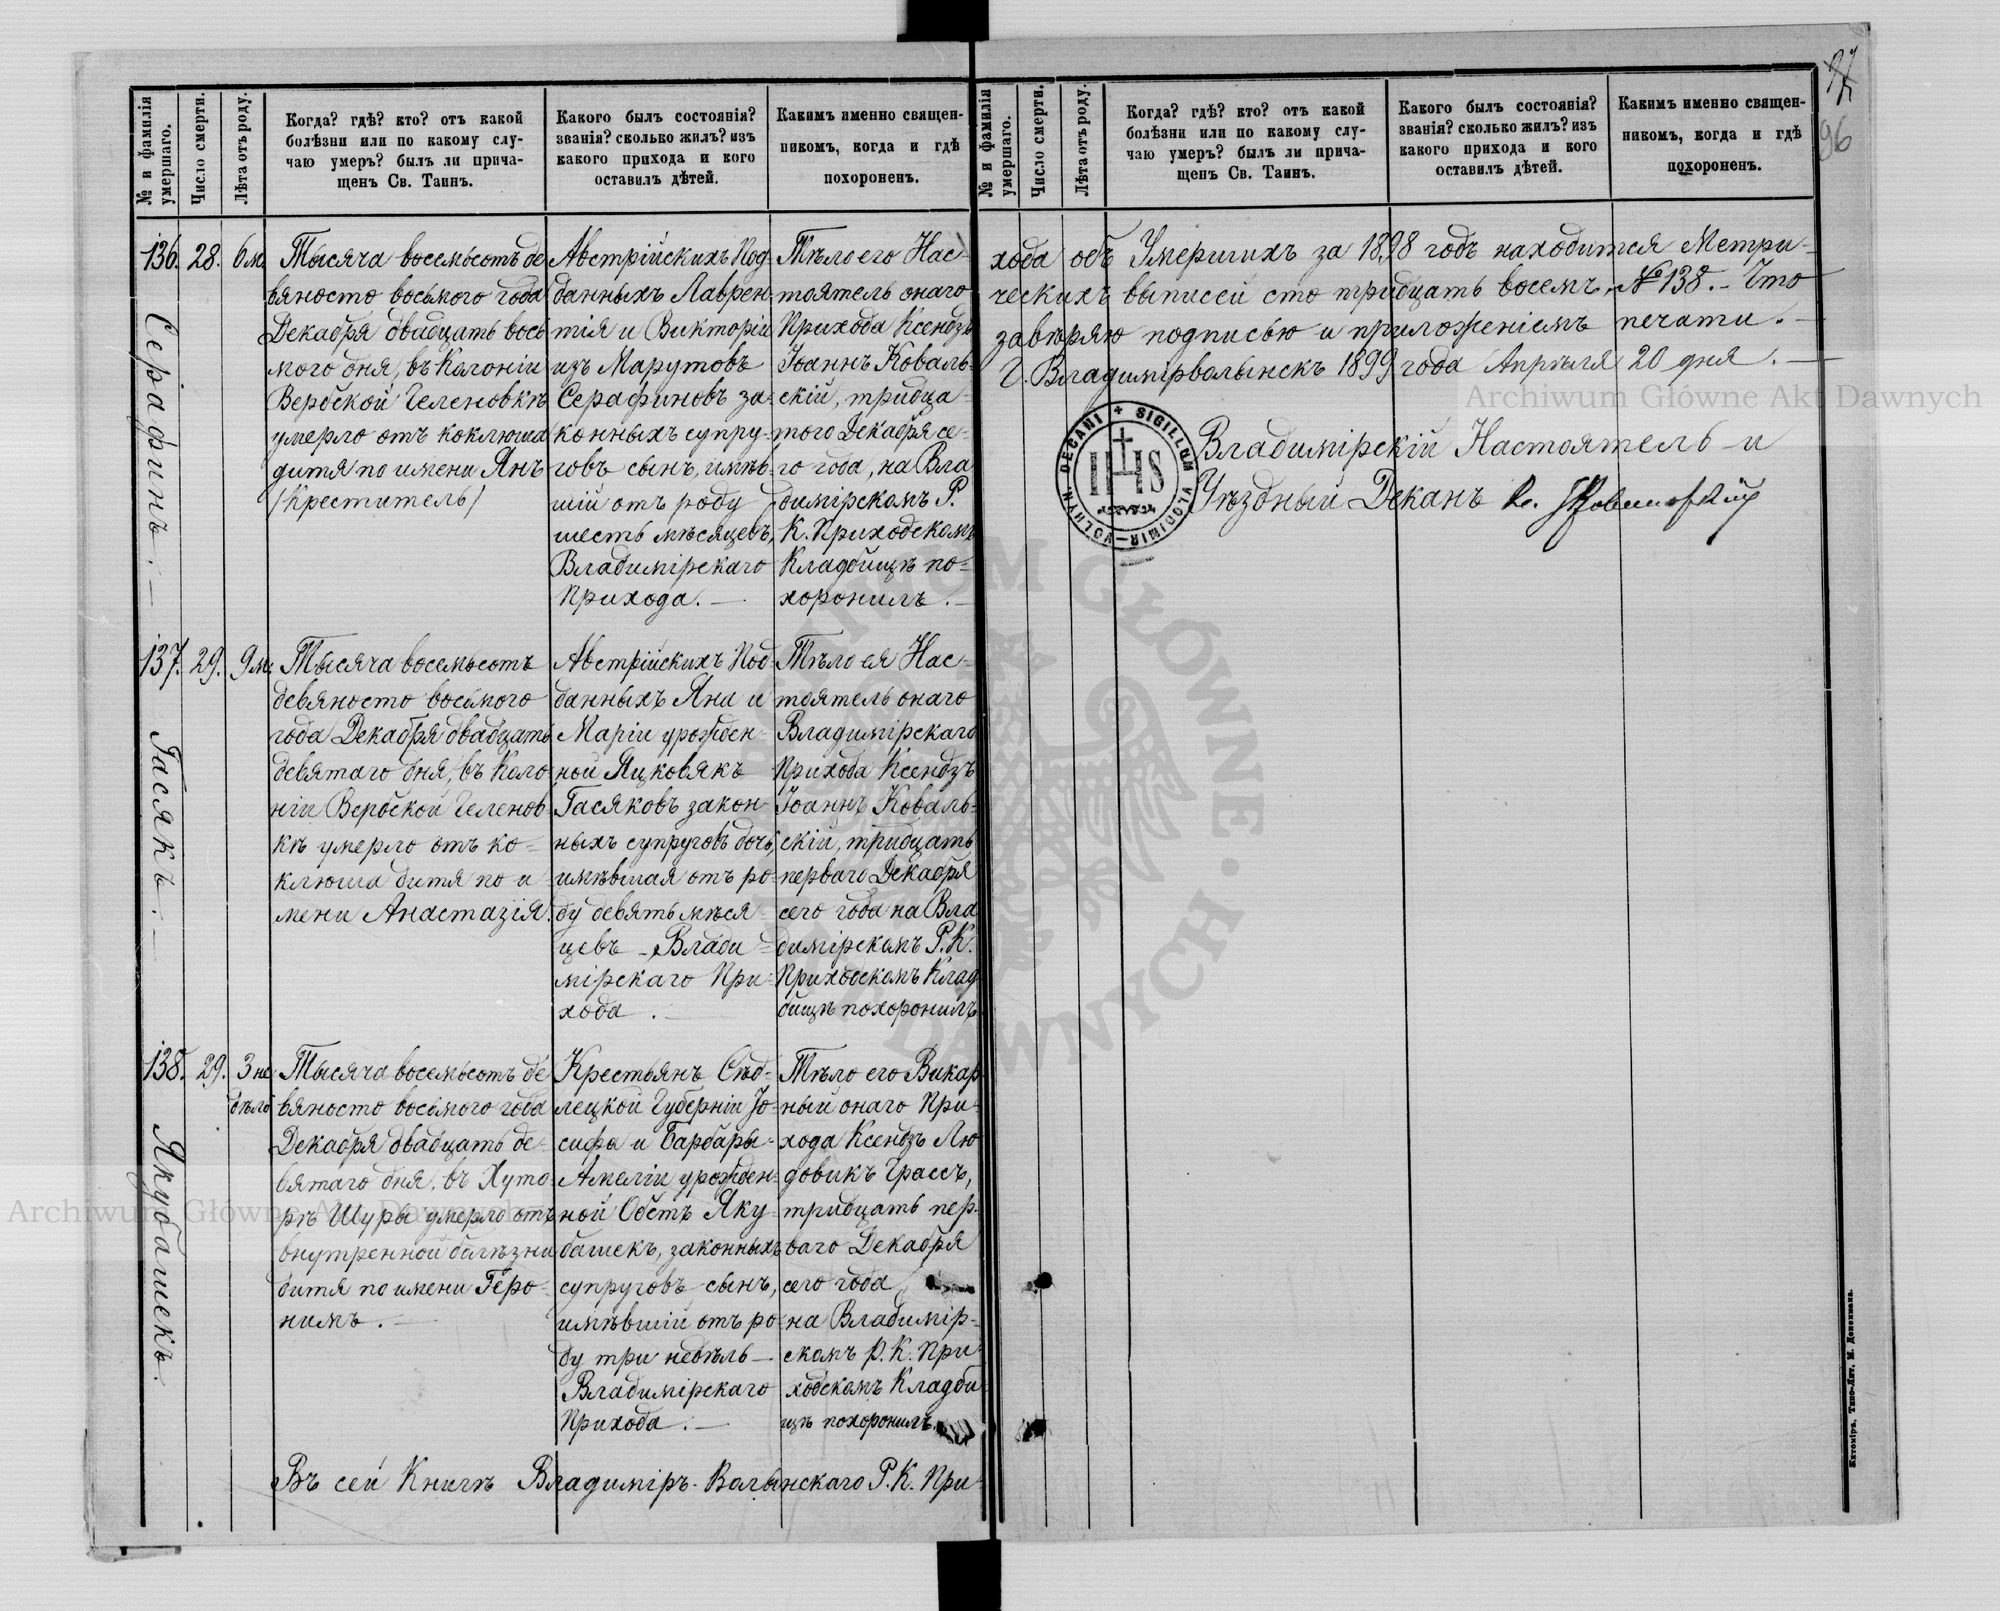 № и фамилія умершаго.
Число смерти.
Лѣта отъ роду.
Когда? гдѣ? кто? отъ какой
болѣзни или по какому слу-
чаю умеръ? былъ ли прича-
щенъ Св. Таинъ.
Какого былъ состоянія?
званія? сколько жилъ? изъ
какого прихода и кого
оставилъ дѣтей.
Какимъ именно священ-
никомъ, когда и гдѣ
похороненъ.
136.
Серафинъ. —
28.
6 м.
Тысяча восемьсотъ де
вяносто восьмого года
Декабря двадцать вось
мого дня, въ Колоніи
Вербской Геленовкѣ
умерло отъ коклюша
дитя по имени Янъ
/Креститель/
Австрійскихъ Под-
данныхъ Лаврен-
тія и Викторіи
изъ Марутовъ
Серафиновъ за-
конныхъ супру-
говъ сынъ, имѣв-
шій отъ роду
шесть мѣсяцевъ,
Владимірскаго
Прихода. —
Тѣло его Нас-
тоятель онаго
Прихода Ксендзъ
Іоаннъ Коваль-
скій, тридца-
того Декабря се-
го года, на Вла
димірскомъ Р.
К. Приходскомъ
Кладбищѣ по-
хоронилъ. —
137.
Гасякъ. —
29.
9 м.
Тысяча восемьсотъ
девяносто восьмого
года Декабря двадцать
девятаго дня, въ Коло-
ніи Вербской Геленов-
кѣ умерло отъ ко-
клюша дитя по и-
мени Анастазія.
Австрійскихъ Под-
данныхъ Яна и
Маріи урожден-
ной Яцковякъ
Гасяковъ закон-
ныхъ супруговъ дочь,
имѣвшая отъ ро-
ду девять мѣся-
цевъ - Влади-
мірскаго При-
хода. —
Тѣло ея Нас-
тоятель онаго
Владимірскаго
Прихода Ксендзъ
Іоаннъ Коваль-
скій, тридцать
перваго Декабря
сего года на Вла
димірскомъ Р. К.
Приходскомъ Клад
бищѣ похоронилъ
138.
Якубашекъ.
29.
3 не
дѣли
Тысяча восемьсотъ де
вяносто восьмого года
Декабря двадцать де-
вятаго дня, въ Хуто-
рѣ Шуры умерло отъ
внутренной болѣзни
дитя по имени Геро-
нимъ. —
Крестьянъ Сѣд-
лецкой Губерніи Іо-
сифа и Барбары-
Амеліи урожден-
ной Обстъ Яку-
башекъ, законныхъ
супруговъ сынъ,
имѣвшій отъ ро-
ду три недѣль —
Владимірскаго
Прихода. —
Тѣло его Викар
ный онаго При-
хода Ксендзъ Лю
довикъ Грассъ,
тридцать пер-
ваго Декабря
сего года
на Владимір-
скомъ Р. К. При-
ходскомъ Кладби
щѣ похоронилъ.
Въ сей Книгѣ Владиміръ-Волынскаго Р. К. При-
97
96
№ и фамилія умершаго.
Число смерти.
Лѣта отъ роду.
Когда? гдѣ? кто? отъ какой
болѣзни или по какому слу-
чаю умеръ? былъ ли прича-
щенъ Св. Таинъ.
Какого былъ состоянія?
званія? сколько жилъ? изъ
какого прихода и кого
оставилъ дѣтей.
Какимъ именно священ-
никомъ, когда и гдѣ
похороненъ.
хода объ Умершихъ за 1898 годъ находится Метри-
ческихъ выписей сто тридцать восемь, № 138. - Что
завѣряю подписью и приложеніемъ печати. —
Г. Владимірволынскъ 1899 года Апрѣля 20 дня. —
Владимірскій Настоятель и
Уѣздный Деканъ Кс.
SIGILLUM VLODIMIR-VOLHYN. DECANI
IHS
Житоміръ, Типо-Лит. М. Дененмана.
Archiwum Główne Akt Dawnych
Archiwum Główne Akt Dawnych
ARCHIWUM GŁÓWNE · AKT DAWNYCH ·